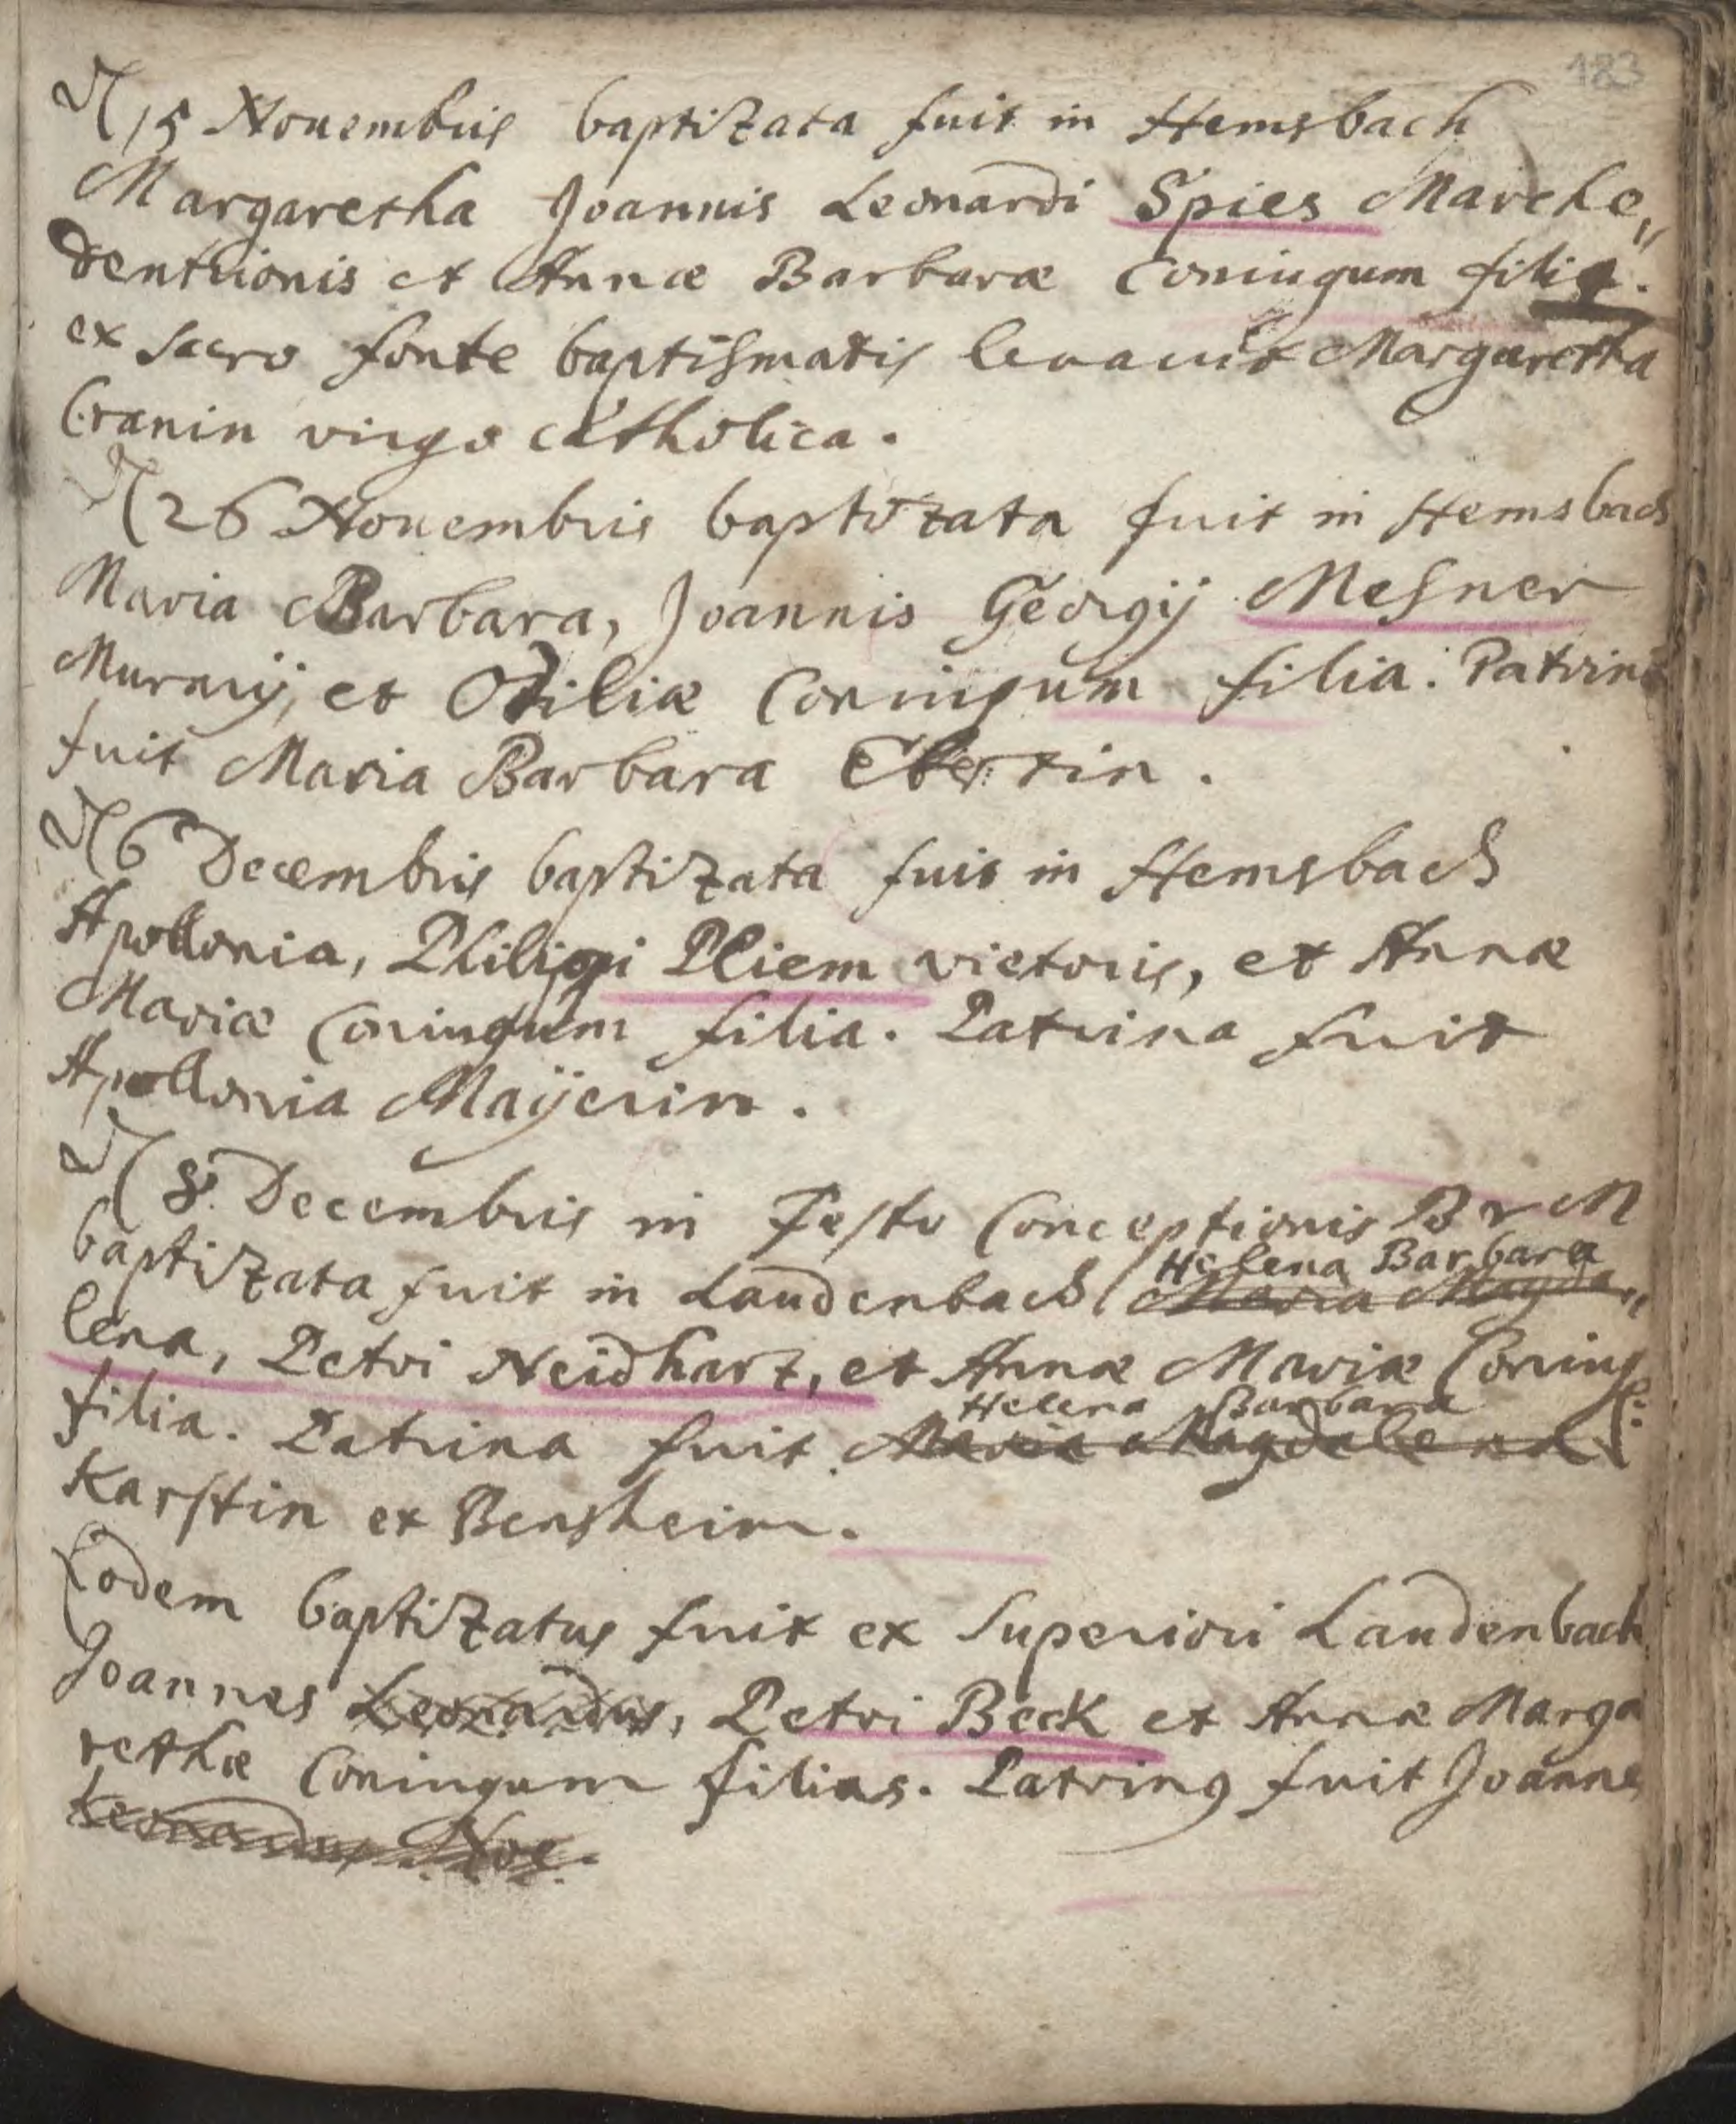 183
15 Nouembris baptizata fuit in Hemsbach
Margaretha Joannis Leonardi Spies Marche„
dentrionis et Annæ Barbaræ Coniugum filia.
ex sacro fonte baptismatis leuauit Margaretha
Cranin virgo catholica.
26 Nouembris baptizata fuit in Hemsbach
Maria Barbara, Joannis Georgij Mesner
Murarij, et Otiliæ Coniugum filia. Patrina
fuit Maria Barbara Ebertin.
6 Decembris baptizata fuit in Hemsbach
Apollonia, Philippi Pliem vietoris, et Annæ
Mariæ Coniugum filia. Patrina fuit
Apollonia Maÿerin.
8. Decembris in Festo Conceptionis B V M
Helena Barbara
baptizata fuit in Laudenbach Maria Magda„
lena, Petri Neidhart, et Annæ Mariæ Coniug:
Helena Barbara
filia. Patrina fuit Maria Magdalena
Karstin ex Bensheim.
Eodem baptizatus fuit ex superiori Laudenbach
Joannes Leonardus, Petri Beck et Annæ Marga
rethæ Coniugum filius. Patrinus fuit Joannes
Leonardus Noe.